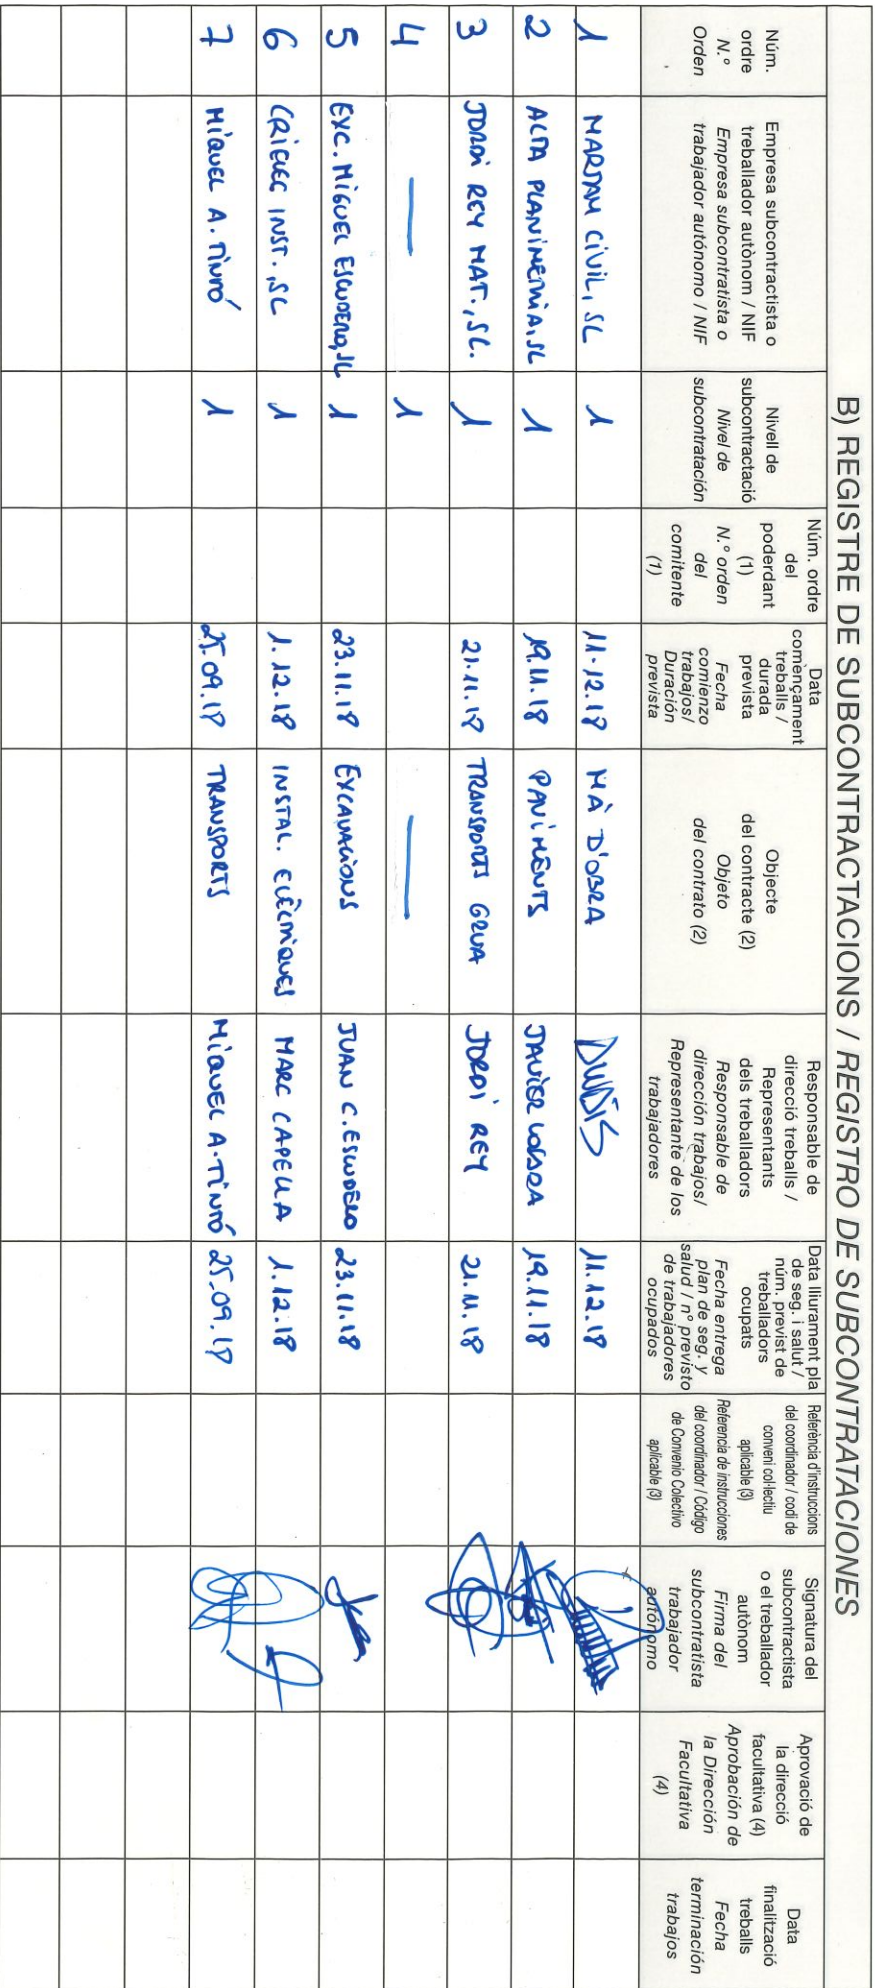 B) REGISTRE DE SUBCONTRACTACIONS / REGISTRO DE SUBCONTRATACIONES
Núm.
ordre
N.º
Orden
Empresa subcontractista o
treballador autònom / NIF
Empresa subcontratista o
trabajador autónomo / NIF
Nivell de
subcontractació
Nivel de
subcontratación
Núm. ordre
del
poderdant
(1)
N.º orden
del
comitente
(1)
Data
començament
treballs /
durada
prevista
Fecha
comienzo
trabajos/
Duración
prevista
Objecte
del contracte (2)
Objeto
del contrato (2)
Responsable de
direcció treballs /
Representants
dels treballadors
Responsable de
dirección trabajos/
Representante de los
trabajadores
Data lliurament pla
de seg. i salut /
núm. previst de
treballadors
ocupats
Fecha entrega
plan de seg. y
salud / nº previsto
de trabajadores
ocupados
Referència d'instruccions
del coordinador / codi de
conveni col·lectiu
aplicable (3)
Referencia de instrucciones
del coordinador / Código
de Convenio Colectivo
aplicable (3)
Signatura del
subcontractista
o el treballador
autònom
Firma del
subcontratista
trabajador
autónomo
Aprovació de
la direcció
facultativa (4)
Aprobación de
la Dirección
Facultativa
(4)
Data
finalització
treballs
Fecha
terminación
trabajos
1 CIVIL, SL 1 11.12.18 MÀ D'OBRA 11.12.18
2 ALTA PLANIMETRIA, SL 1 19.11.18 PAVIMENTS JAVIER 19.11.18
3 JORDI REY MAT., SL. 1 21.11.18 TRANSPORTS GRUA JORDI REY 21.11.18
4 — 1 —
5 EXC. MIGUEL ESCUDERO, SL 1 23.11.18 EXCAVACIONS JUAN C. ESCUDERO 23.11.18
6 INST., SL 1 1.12.18 INSTAL. ELÈCTRIQUES MARC CAPELLA 1.12.18
7 MIQUEL A. TINTÓ 1 25.09.18 TRANSPORTS MIQUEL A. TINTÓ 25.09.18